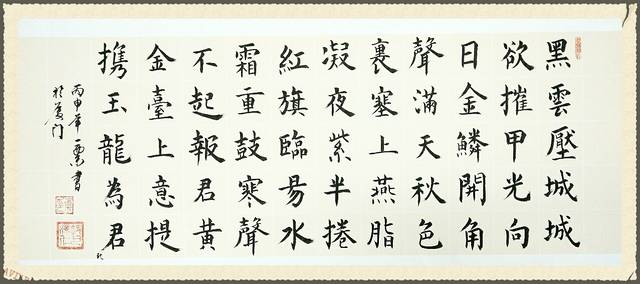 黑雲壓城城
欲摧甲光向
日金鱗開角
聲滿天秋色
裏塞上燕脂
凝夜紫半捲
紅旗臨易水
霜重鼓寒聲
不起報君黃
金臺上意提
携玉龍為君
丙申年一書
於厦门